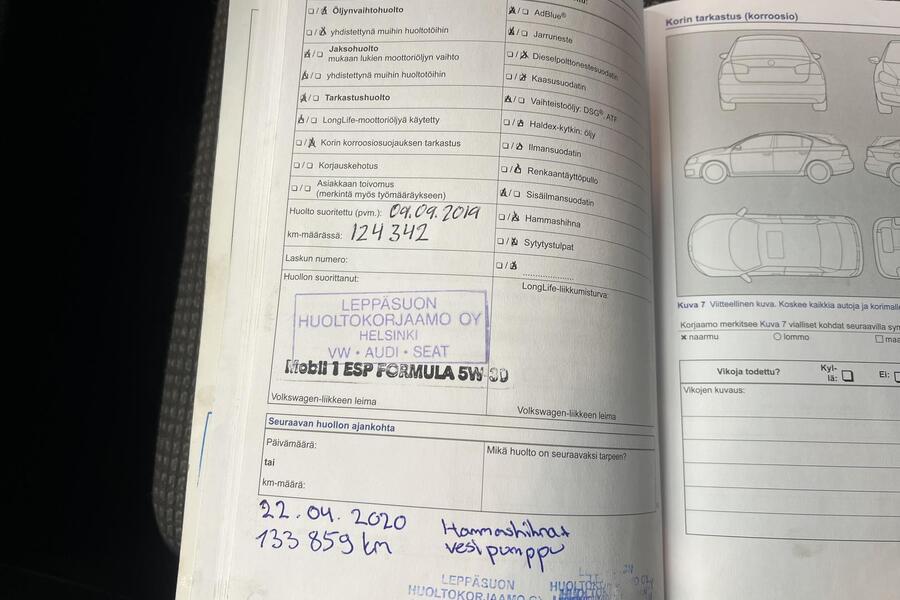 Öljynvaihtohuolto
yhdistettynä muihin huoltotöihin
Jaksohuolto
mukaan lukien moottoriöljyn vaihto
yhdistettynä muihin huoltotöihin
Tarkastushuolto
LongLife-moottoriöljyä käytetty
Korin korroosiosuojauksen tarkastus
Korjauskehotus
Asiakkaan toivomus
(merkintä myös työmääräykseen)
Huolto suoritettu (pvm.): 09.09.2019
km-määrässä: 124 342
Laskun numero:
Huollon suorittanut:
LEPPÄSUON
HUOLTOKORJAAMO OY
HELSINKI
VW • AUDI • SEAT
Mobil 1 ESP FORMULA 5W-30
Volkswagen-liikkeen leima
AdBlue®
Jarruneste
Dieselpolttonestesuodatin
Kaasusuodatin
Vaihteistoöljy: DSG®, ATF
Haldex-kytkin: öljy
Ilmansuodatin
Renkaantäyttöpullo
Sisäilmansuodatin
Hammashihna
Sytytystulpat
LongLife-liikkumisturva:
Volkswagen-liikkeen leima
Seuraavan huollon ajankohta
Päivämäärä:
tai
km-määrä:
Mikä huolto on seuraavaksi tarpeen?
22.04.2020
133 859 km
Hammashihnat
vesipumppu
LEPPÄSUON
HUOLTOKORJAAMO OY
Korin tarkastus (korroosio)
Kuva 7 Viitteellinen kuva. Koskee kaikkia autoja ja
Korjaamo merkitsee Kuva 7 vialliset kohdat seuraavilla
× naarmu
lommo
Vikoja todettu?
Kyl-
lä:
Ei:
Vikojen kuvaus: